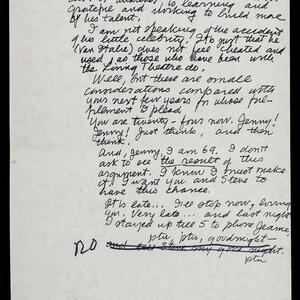 grateful and working to build more
of his talent.
I am not speaking of the accident
of his little celebrity. It's just that he
(Van Itallie) does not feel cheated and
used, as those who have been with
the Living Theatre do.
Well, but these are small
considerations compared with
your next few years for whose ful-
fillment I plead.
You are twenty-four now. Jenny!
Jenny! Just think, and then
think.
And, Jenny, I am 69. I don't
ask to see the result of this
argument. I know I must make
it. I want you and Steve to
have this chance.
It is late... I'll stop now, loving
you. Very late... and last night
I stayed up till 5 to phone
ptu, ptu, goodnight—
NO and my good night.
ptu